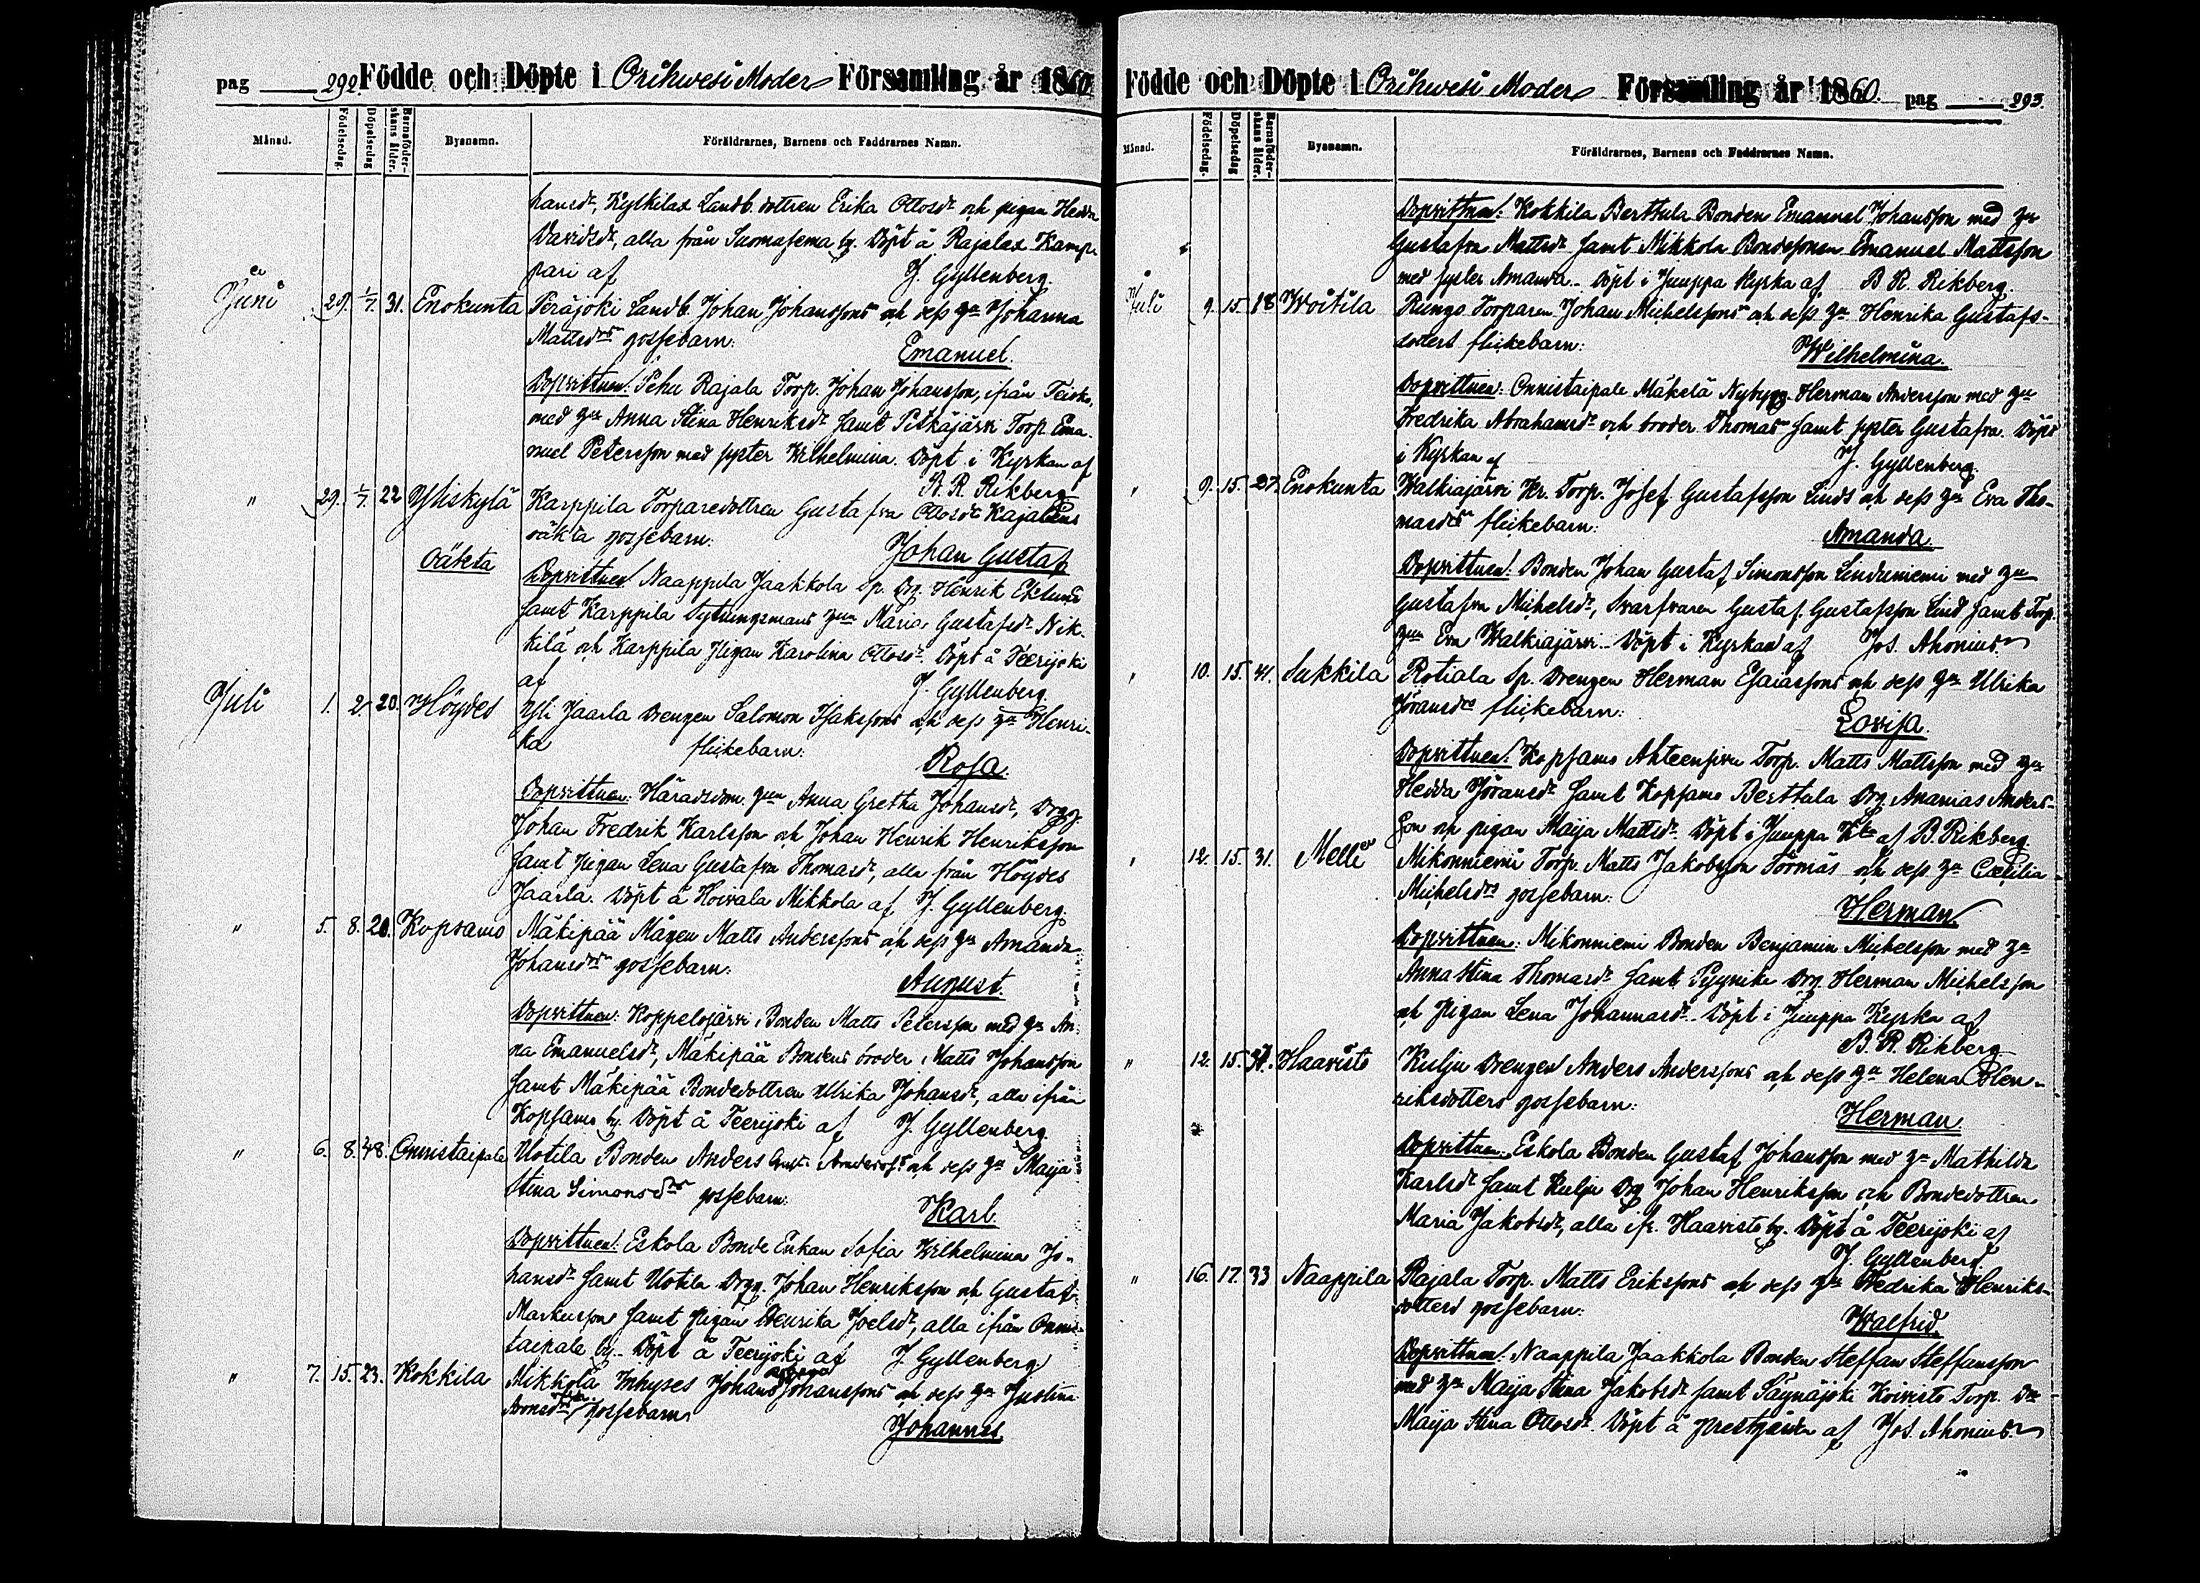 pag 292. Födde och Döpte i Orihwesi Moder Församling år 1860
Månad. Födelsedag. Döpelsedag Barnaföder-skans ålder. Bysnamn. Föräldrarnes, Barnens och Faddrarnes Namn.
hansdr, Kyllilax Landb. dottren Erika Ottosdr och pigan Hedda
Davidsdr, alla från Suomasema by. Döpt å Rajalax Kamp-
pari af J. Gyllenberg.
Juni 29. 1/7. 31. Enokunta Peräjoki Landb. Johan Johanssons och dess Hu Johanna
Mattsdrs gossebarn: Emanuel.
Dopvittnen: Pehu Rajala Torp. Johan Johansson, ifrån Teisko,
med Hu Anna Stina Henriksdr samt Pitkäjärvi Torp. Ema-
nuel Petersson med syster Wilhelmina. Döpt i Kyrkan af
B. R. Rikberg
" 29. 1/7. 22 Yliskylä Karppila Torparedottren Gustafva Ottosdr Kajalens
oäkta gossebarn: Johan Gustaf
Oäkta
Dopvittnen: Naappila Jaakkola Sp. Drg. Henrik Eklund
samt Karppila Sytningsmans Hun Maria Gustafsdr Nik-
kilä och Karppila Pigan Karolina Ottosdr. Döpt å Teerijoki
af J. Gyllenberg.
Juli 1. 2. 20. Höydes Yli Jaarla Drengen Salomon Isakssons och dess Hu Henri-
ka flickebarn: Rosa.
Dopvittnen: Häradsdom. Hun Anna Gretha Johansdr, Drgg
Johan Fredrik Karlsson och Johan Henrik Henriksson
samt Pigan Lena Gustafva Thomasdr, alla från Höydes
Jaarla. Döpt å Hoivala Mikkola af J. Gyllenberg.
" 5. 8. 20. Kopsamo Mäkipää Mågen Matts Anderssons och dess Hu Amanda
Johansdrs gossebarn: August.
Dopvittnen: Koppelojärvi Bonden Matts Petersson med Hu An-
na Emanuelsdr, Mäkipää Bondens broder Matts Johansson
samt Mäkipää Bondedottren Ulrika Johansdr, alla ifrån
Kopsamo by. Döpt å Teerijoki af J. Gyllenberg.
" 6. 8. 48. Onnistaipale Uotila Bonden Anders Gust. Anderss. och dess Hu Maija
Stina Simonsdrs gossebarn: Karl.
Dopvittnen: Eskola Bonde Enkan Sofia Wilhelmina Jo-
hansdr samt Uotila Drgg. Johan Henriksson och Gustaf
Markusson samt Pigan Henrika Joelsdr, alla ifrån Onnis-
taipale by. Döpt å Teerijoki af J. Gyllenberg
" 7. 15. 23. Kokkila Mikkola Inhyses Johan Johanssons och dess Hu Justina
Aronsdrs gossebarn Johannes.
Födde och Döpte i Orihwesi Moder Församling år 1860. pag 293.
Månad. Födelsedag. Döpelsedag Barnaföder-skans ålder. Bysnamn. Föräldrarnes, Barnens och Faddrarnes Namn.
Dopvittnen: Kokkila Berttula Bonden Emanuel Johansson med Hu
Gustafva Mattsdr samt Mikkola Bondesonen Emanuel Mattsson
med syster Amanda. Döpt i Juuppa Kyrka af B. R. Rikberg.
Juli 9. 15. 18 Woitila Rungo Torparen Johan Michelssons och dess Hu Henrika Gustafs-
dotters flickebarn: Wilhelmina.
Dopvittnen: Onnistaipale Mäkelä Nybygg. Herman Andersson med Hu
Fredrika Abrahamsdr och broder Thomas samt syster Gustafva. Döpt
i Kyrkan af J. Gyllenberg.
" 9. 15. 27. Enokunta Walkiajärvi Kr. Torp. Josef Gustafsson Linds och dess Hu Eva Tho-
masdrs flickebarn: Amanda.
Dopvittnen: Bonden Johan Gustaf Simonsson Linduniemi med Hu
Gustafva Michelsdr, Svarfvaren Gustaf Gustafsson Lind samt Torp.
Hun Eva Walkiajärvi. Döpt i Kyrkan af Jos. Ahonius.
" 10. 15. 41. Sukkila Rotiala Sp. Drengen Herman Esaiassons och dess Hu Ulrika
Göransdrs flickebarn: Lovisa.
Dopvittnen: Kopsamo Ahteensivu Torp. Matts Mattsson med Hu
Hedda Göransdr samt Kopsamo Berttula Drg. Ananias Anders-
son och pigan Maija Mattsdr. Döpt i Juuppa Kka af B. Rikberg.
" 12. 15. 31. Melli Mikonniemi Torp. Matts Jakobsson Törmäs och dess Hu Cæcilia
Michelsdrs gossebarn: Herman
Dopvittnen: Mikonniemi Bonden Benjamin Michelsson med Hu
Anna Stina Thomasdr samt Pyynikö Drg. Herman Michelsson
och Pigan Lena Johannasdr. Döpt i Juuppa Kyrka af
B. R. Rikberg
" 12. 15. Haavisto Kulju Drengen Anders Anderssons och dess Hu Helena Hen-
riksdotters gossebarn: Herman.
Dopvittnen: Eskola Bonden Gustaf Johansson med Hu Mathilda
Karlsdr samt Kulju Drg. Johan Henriksson och Bondedottren
Maria Jakobsdr, alla ifr. Haavisto by. Döpt å Teerijoki af
J. Gyllenberg.
" 16. 17. 33 Naappila Rajala Torp. Matts Erikssons och dess Hu Fredrika Henriks-
dotters gossebarn: Walfrid.
Dopvittnen: Naappila Jaakkola Bonden Steffan Steffansson
med Hu Maija Stina Jakobsdr samt Säynäjoki Koivisto Torp. Dr
Maija Stina Ottosdr. Döpt å prestgården af Jos. Ahonius.